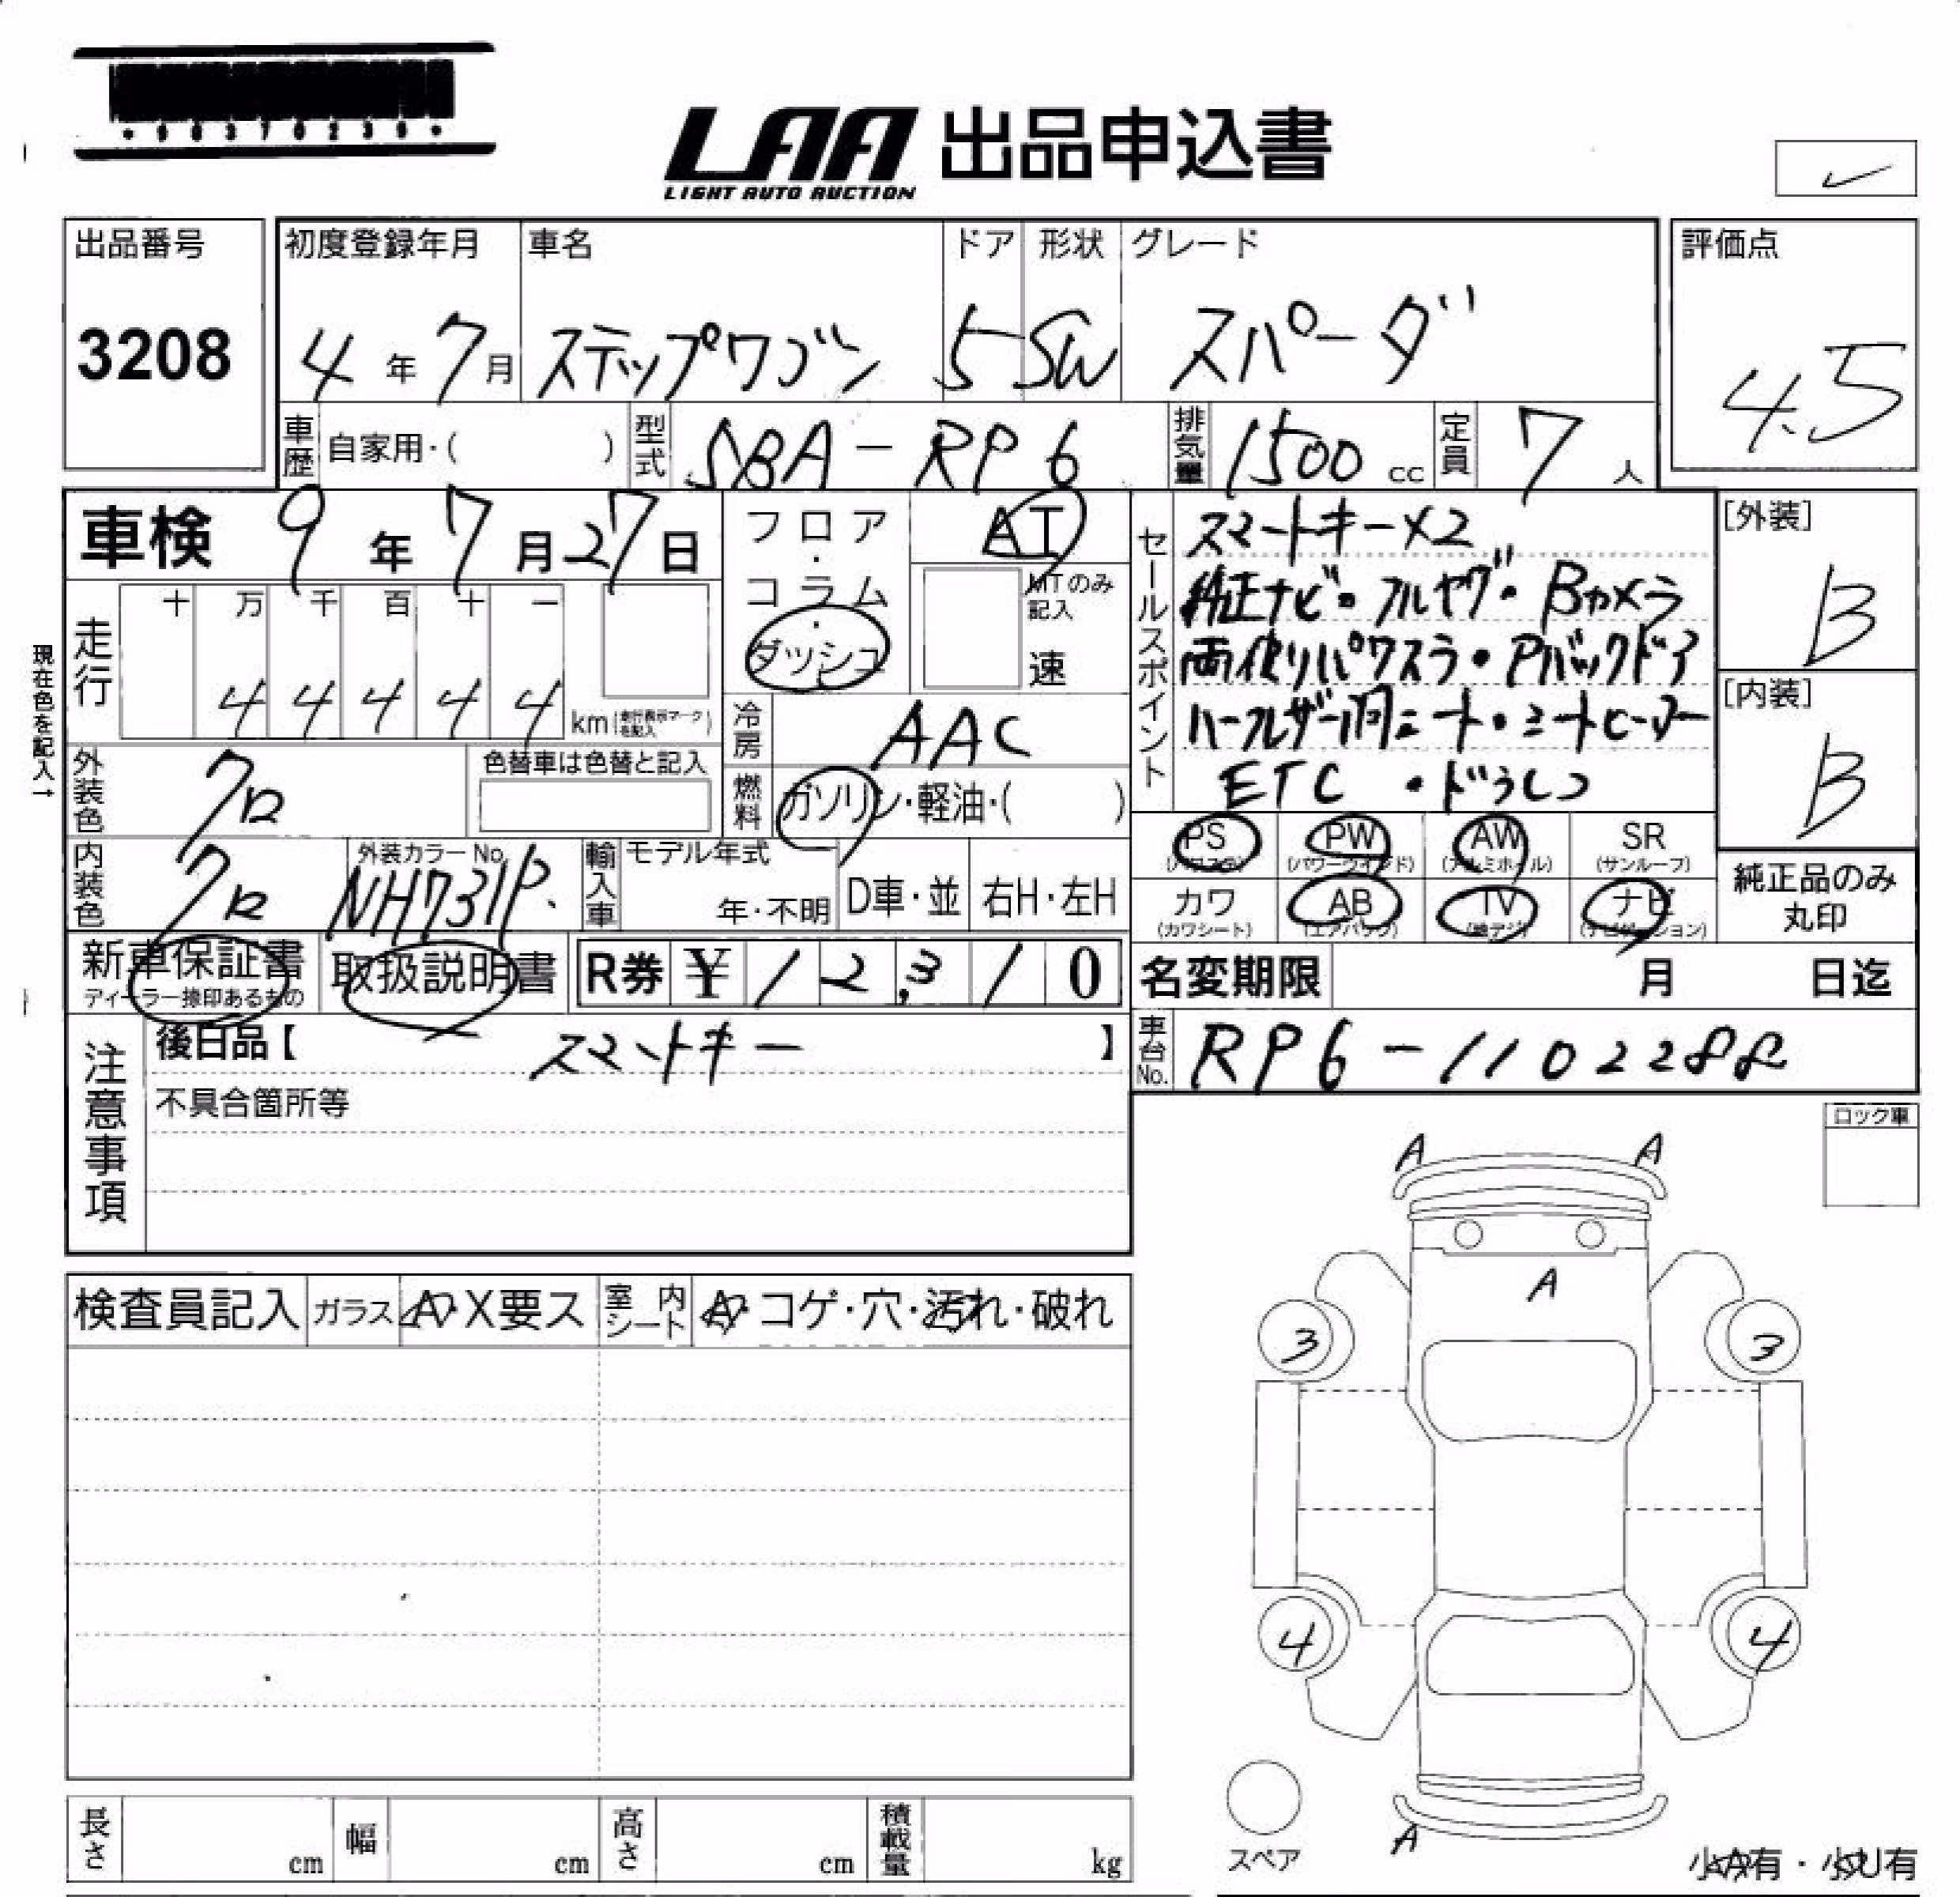 90370230
LAA 出品申込書
LIGHT AUTO AUCTION
出品番号 3208
初度登録年月 4年7月
車名 ステップワゴン
ドア 5
形状 SW
グレード スパーダ
評価点 4.5
車歴 自家用・( )
型式 5BA-RP6
排気量 1500cc
定員 7人
車検 9年7月27日
フロア・コラム・ダッシュ
AT
MTのみ記入
速
セールスポイント
スマートキー×2
純正ナビ・フルセグ・Bカメラ
両側パワスラ・Pバックドア
ハーフレザー調シート・シートヒーター
ETC・ドラレコ
[外装] B
[内装] B
現在色を記入→
走行 十万千百十一
44444km(走行表示マークを記入)
冷房 AAC
外装色 クロ
色替車は色替と記入
燃料 ガソリン・軽油・( )
内装色 クロ
外装カラーNo. NH731P.
輸入車 モデル年式 年・不明 D車・並 右H・左H
PS (パワステ)
PW (パワーウインド)
AW (アルミホイル)
SR (サンルーフ)
カワ (カワシート)
AB (エアバック)
TV (地デジ)
ナビ (ナビゲーション)
純正品のみ丸印
新車保証書
ディーラー捺印あるもの
取扱説明書
R券 ¥12,310
名変期限 月 日迄
注意事項
後日品【 スマートキー 】
不具合箇所等
車台No. RP6-1102288
ロック車
検査員記入 ガラス A・X要ス 室内シート A・コゲ・穴・汚れ・破れ
A A
A
3 3
4 4
A
スペア
小A有・小U有
長さ cm 幅 cm 高さ cm 積載量 kg